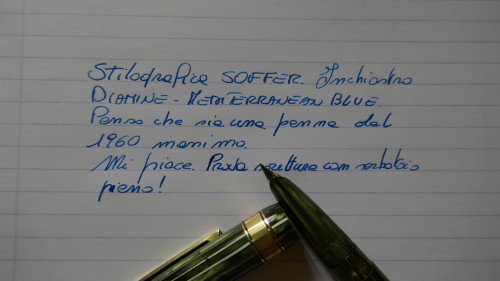 Stilografica SOFFER. Inchiostro
DIAMINE - MEDITERRANEAN BLUE.
Penso che sia una penna del
1960 massimo.
Mi piace. Prova scrittura con serbatoio
pieno!